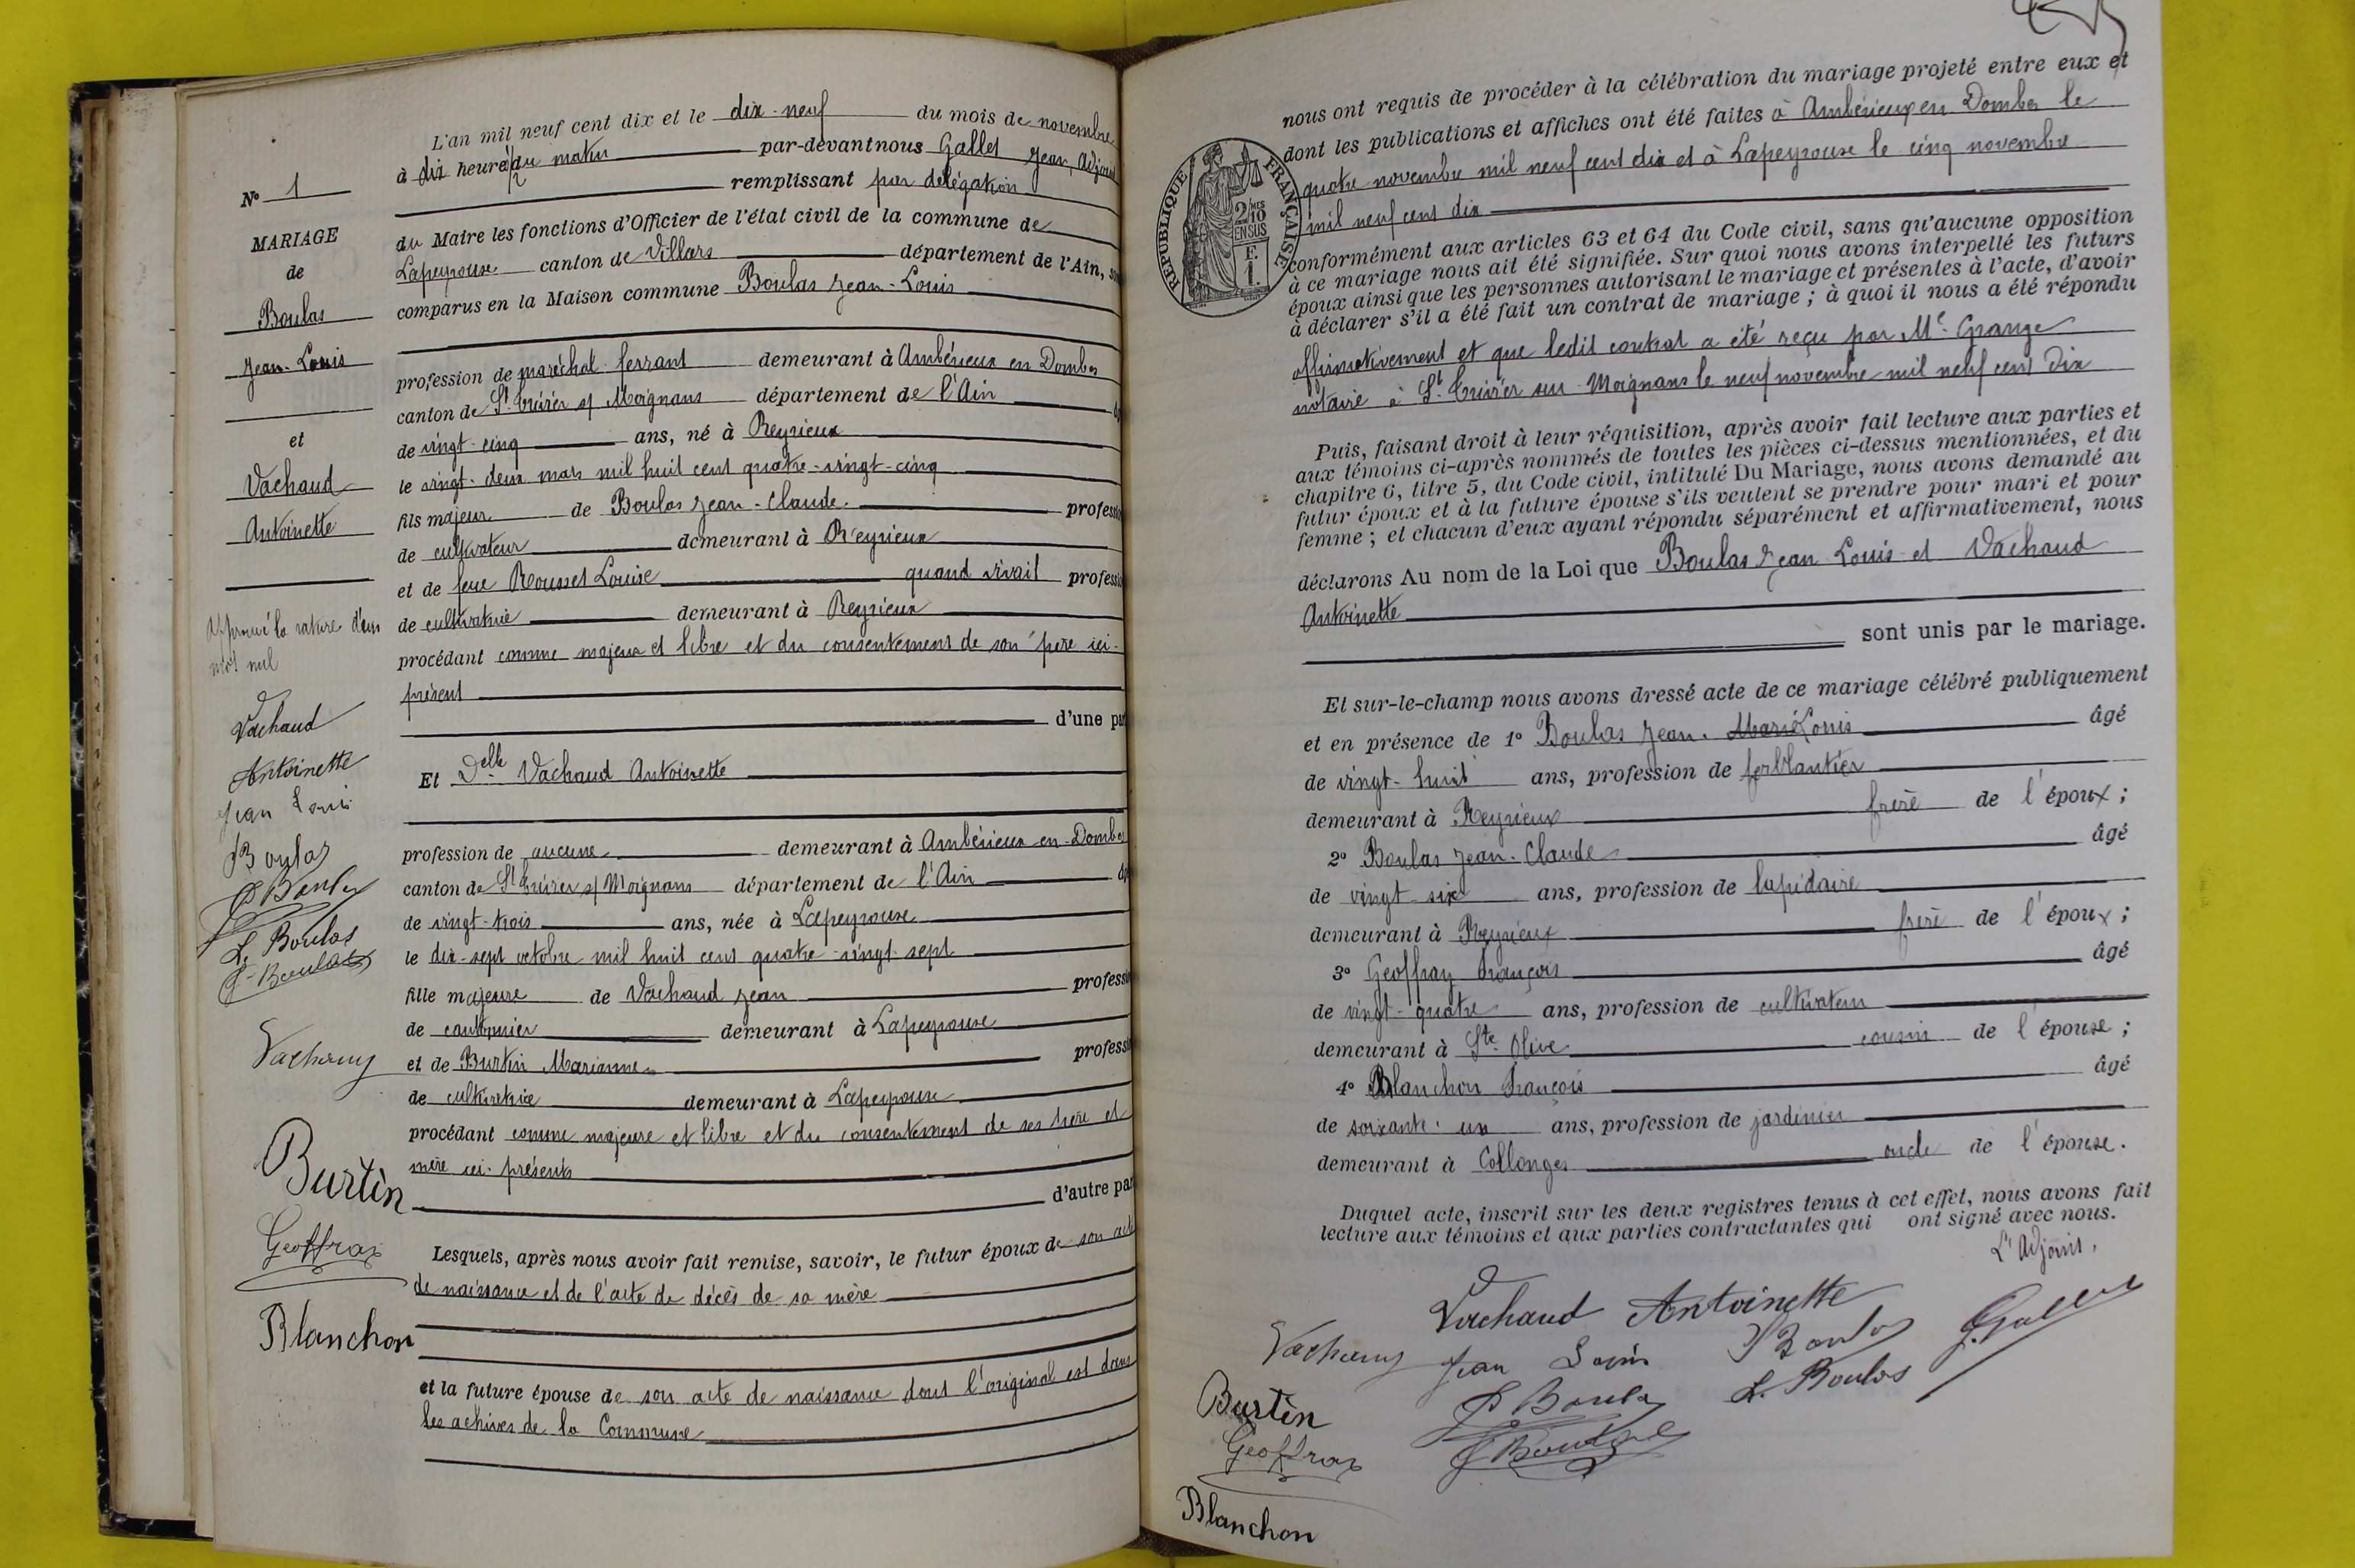 N° 1
MARIAGE
de
Boulas
Jean-Louis
et
Vachaud
Antoinette
Approuvé la rature d'un
mot nul
Vachaud
Antoinette
Jean Louis
Boulas
Boulas
L. Boulas
J. Boulas
Vachaud
Burtin
Geoffray
Blanchon
L'an mil neuf cent dix et le dix-neuf du mois de novembre
à dix heures du matin par-devant nous Gallet Jean, Adjoint
remplissant par délégation
du Maire les fonctions d'Officier de l'état civil de la commune de
Lapeyrouse canton de Villars département de l'Ain, sont
comparus en la Maison commune Boulas Jean-Louis
profession de maréchal-ferrant demeurant à Ambérieux en Dombes
canton de St Trivier s/ Moignans département de l'Ain
de vingt-cinq ans, né à Reyrieux
le vingt-deux mars mil huit cent quatre-vingt-cinq
fils majeur de Boulas Jean-Claude profession
de cultivateur demeurant à Reyrieux
et de feue Rousset Louise quand vivait profession
de cultivatrice demeurant à Reyrieux
procédant comme majeur et libre et du consentement de son père ici-
présent
d'une part
Et Delle Vachaud Antoinette
profession de aucune demeurant à Ambérieux-en-Dombes
canton de St Trivier s/ Moignans département de l'Ain
de vingt-trois ans, née à Lapeyrouse
le dix-sept octobre mil huit cent quatre-vingt-sept
fille majeure de Vachaud Jean profession
de cantonnier demeurant à Lapeyrouse
et de Burtin Marianne profession
de cultivatrice demeurant à Lapeyrouse
procédant comme majeure et libre et du consentement de ses père et
mère ici-présents
d'autre part
Lesquels, après nous avoir fait remise, savoir, le futur époux de son acte
de naissance et de l'acte de décès de sa mère
et la future épouse de son acte de naissance dont l'original est dans
les achives de la Commune
nous ont requis de procéder à la célébration du mariage projeté entre eux et
dont les publications et affiches ont été faites à Ambérieux en Dombes le
quatre novembre mil neuf cent dix et à Lapeyrouse le cinq novembre
mil neuf cent dix
RÉPUBLIQUE FRANÇAISE
2/10 MES
EN SUS
F.
1.
conformément aux articles 63 et 64 du Code civil, sans qu'aucune opposition
à ce mariage nous ait été signifiée. Sur quoi nous avons interpellé les futurs
époux ainsi que les personnes autorisant le mariage et présentes à l'acte, d'avoir
à déclarer s'il a été fait un contrat de mariage ; à quoi il nous a été répondu
affirmativement et que ledit contrat a été reçu par Me Grange
notaire à St Trivier sur Moignans le neuf novembre mil neuf cent dix
Puis, faisant droit à leur réquisition, après avoir fait lecture aux parties et
aux témoins ci-après nommés de toutes les pièces ci-dessus mentionnées, et du
chapitre 6, titre 5, du Code civil, intitulé Du Mariage, nous avons demandé au
futur époux et à la future épouse s'ils veulent se prendre pour mari et pour
femme ; et chacun d'eux ayant répondu séparément et affirmativement, nous
déclarons Au nom de la Loi que Boulas Jean Louis et Vachaud
Antoinette
sont unis par le mariage.
Et sur-le-champ nous avons dressé acte de ce mariage célébré publiquement
et en présence de 1° Boulas Jean-Marie Louis âgé
de vingt-huit ans, profession de ferblantier
demeurant à Reyrieux frère de l'époux ;
2° Boulas Jean-Claude âgé
de vingt-six ans, profession de lapidaire
demeurant à Reyrieux frère de l'époux ;
3° Geoffray François âgé
de vingt-quatre ans, profession de cultivateur
demeurant à Ste Olive cousin de l'épouse ;
4° Blanchon François âgé
de soixante-un ans, profession de jardinier
demeurant à Collonges oncle de l'épouse.
Duquel acte, inscrit sur les deux registres tenus à cet effet, nous avons fait
lecture aux témoins et aux parties contractantes qui ont signé avec nous.
L'Adjoint,
Vachaud Antoinette
Vachaud Jean Louis Boulas J. Gallet
Burtin Boulas L. Boulas
Geoffray J. Boulas
Blanchon